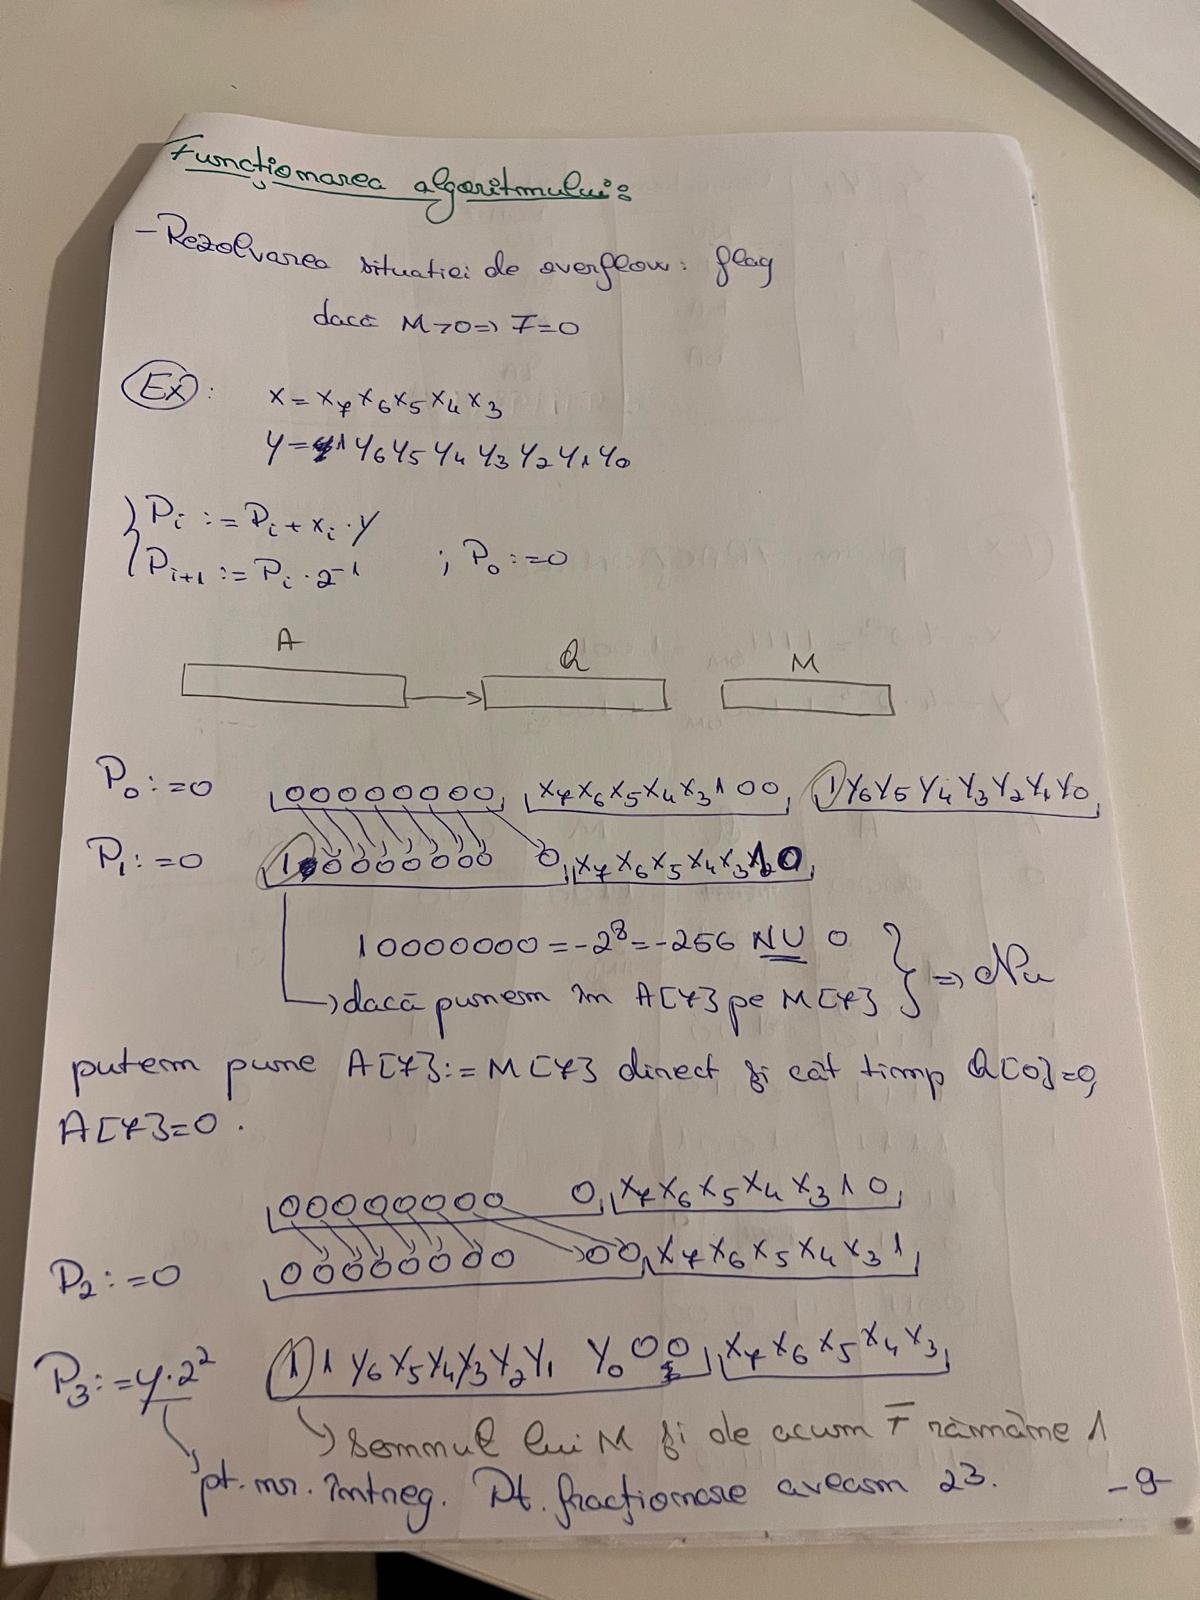 Funcționarea algoritmului:
- Rezolvarea situatiei de overflow: flag
dacă M>0 => F=0
Ex: x = x7 x6 x5 x4 x3
y = 1 y6 y5 y4 y3 y2 y1 y0
Pi := Pi + xi · y
Pi+1 := Pi · 2^-1 ; P0 := 0
A Q M
P0 := 0 00000000 x7 x6 x5 x4 x3 1 0 0 1 y6 y5 y4 y3 y2 y1 y0
P1 := 0 1 0000000 0 x7 x6 x5 x4 x3 1 0
10000000 = -2^8 = -256 NU 0
dacă punem în A[7] pe M[7] } => Nu
putem pune A[7] := M[7] direct și cât timp Q[0]=0,
A[7]=0.
00000000 0 x7 x6 x5 x4 x3 1 0
P2 := 0 00000000 00 x7 x6 x5 x4 x3 1
P3 := y·2^2 1 1 y6 y5 y4 y3 y2 y1 y0 0 0 x7 x6 x5 x4 x3
semnul lui M și de acum F rămâne 1
pt. nr. întreg. Pt. fracționare aveam 23.
-9-